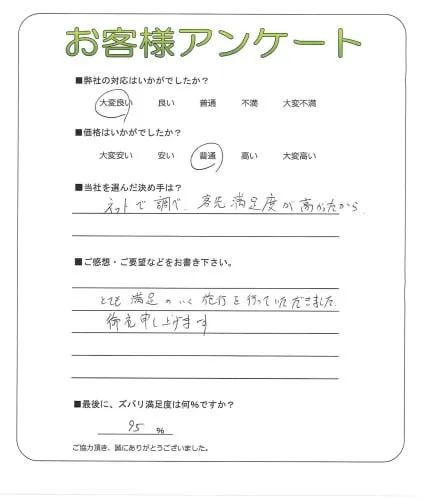 お客様アンケート
■弊社の対応はいかがでしたか?
大変良い 良い 普通 不満 大変不満
■価格はいかがでしたか?
大変安い 安い 普通 高い 大変高い
■当社を選んだ決め手は?
ネットで調べ、客先満足度が高かったから
■ご感想・ご要望などをお書き下さい。
とても満足のいく施行を行っていただきました。
御礼申し上げます
■最後に、ズバリ満足度は何%ですか?
95 %
ご協力頂き、誠にありがとうございました。